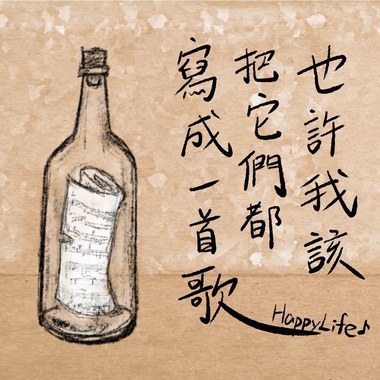 也許我該
把它們都
寫成一首歌
HappyLife♪